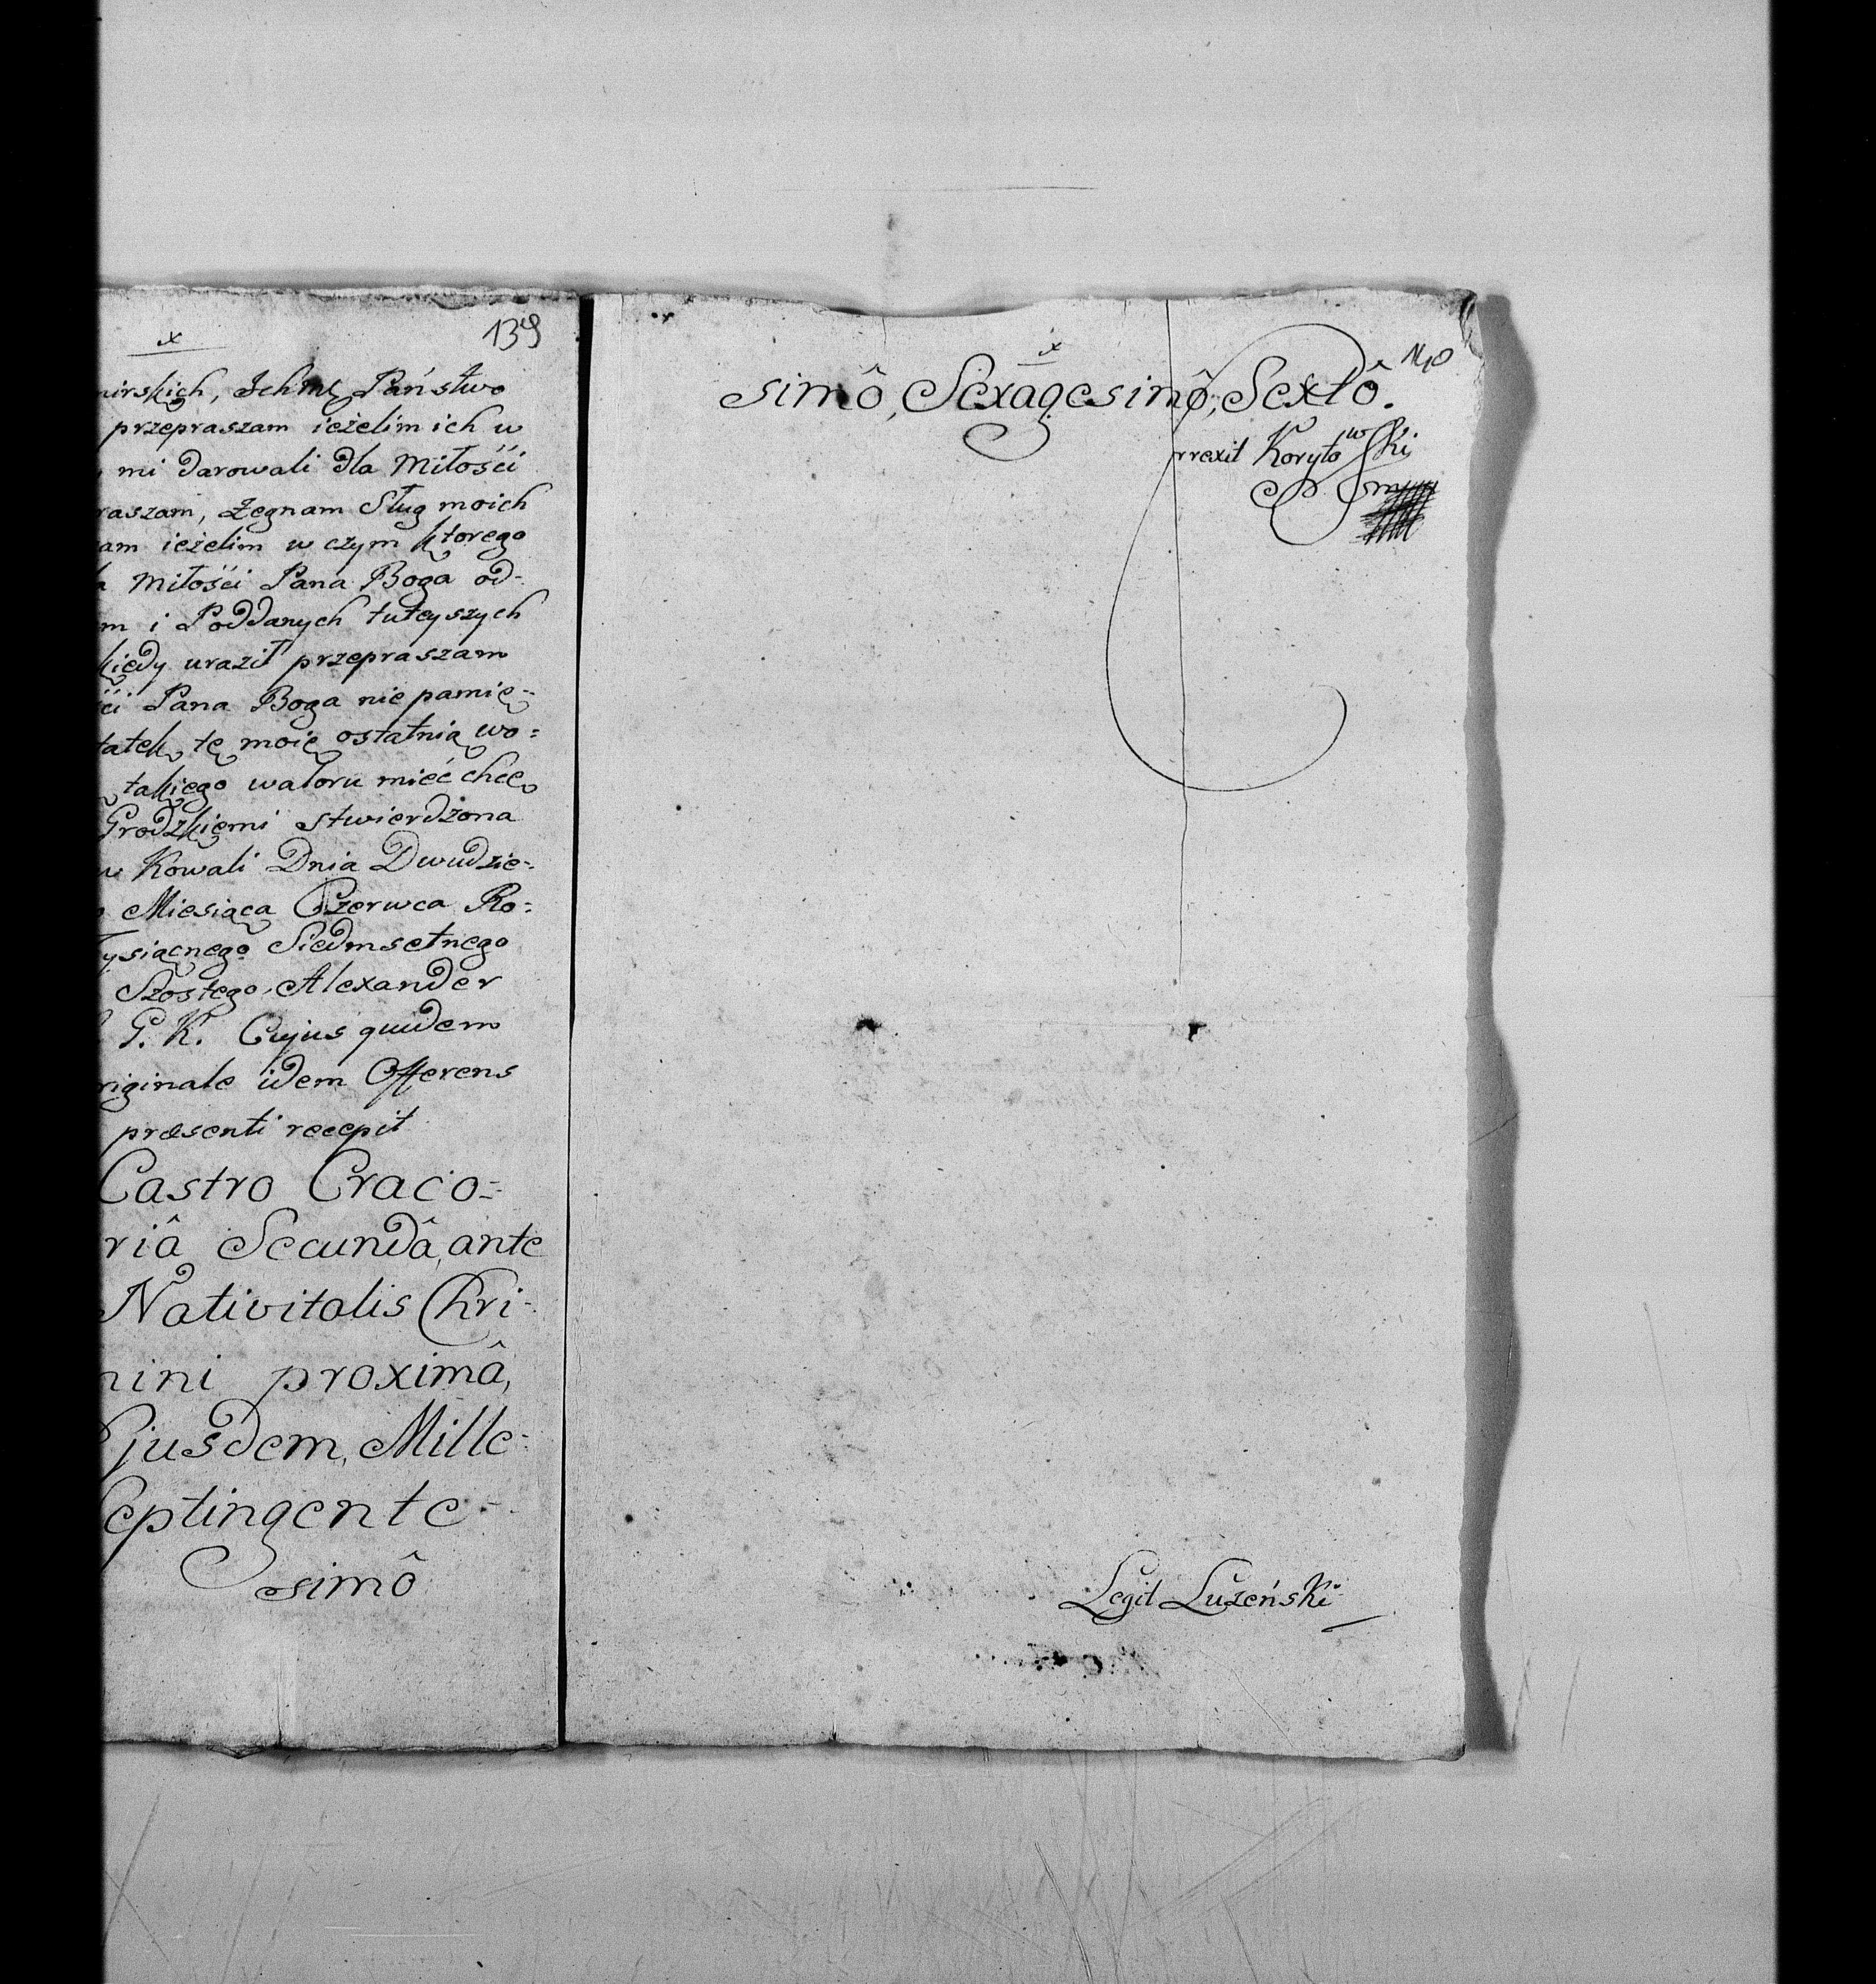 x
139
mirskich, Ichmć Państwo
przepraszam ieżelim ich w
mi darowali dla Miłośći
raszam, Żegnam Sług moich
am ieżelim w czym ktorego
a Miłośći Pana Boga od-
m i Poddanych tuteyszych
kiedy uraził przepraszam
ści Pana Boga nie pamię-
tatek tę moię ostatnią wo=
takiego waloru mieć chcę
Grodzkiemi stwierdzona
w Kowali Dnia Dwudzie-
o Miesiąca Czerwca Ro=
Tysiącnego Siedmsetnego
Szostego. Alexander
G. K. Cujus quidem
riginale idem Offerens
præsenti recepit
Castro Craco=
riâ Secundâ, ante
Nativitatis Chri-
nini proximâ,
Ejusdem, Mille-
Septingente-
simô
x
140
simô, Sexagesimô, Sextô.
rrexit Korytowski
Smpp
Legit Luzeński